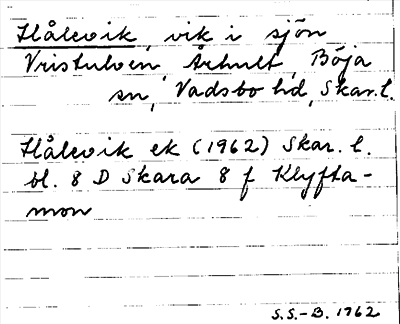 Hålevik, vik i sjön
Vristulven, Århult, Böja
sn, Vadsbo hd, Skar.l.
Hålevik ek (1962) Skar. l.
bl. 8 D Skara 8 f Klyfta-
mon
S.S.-B. 1962